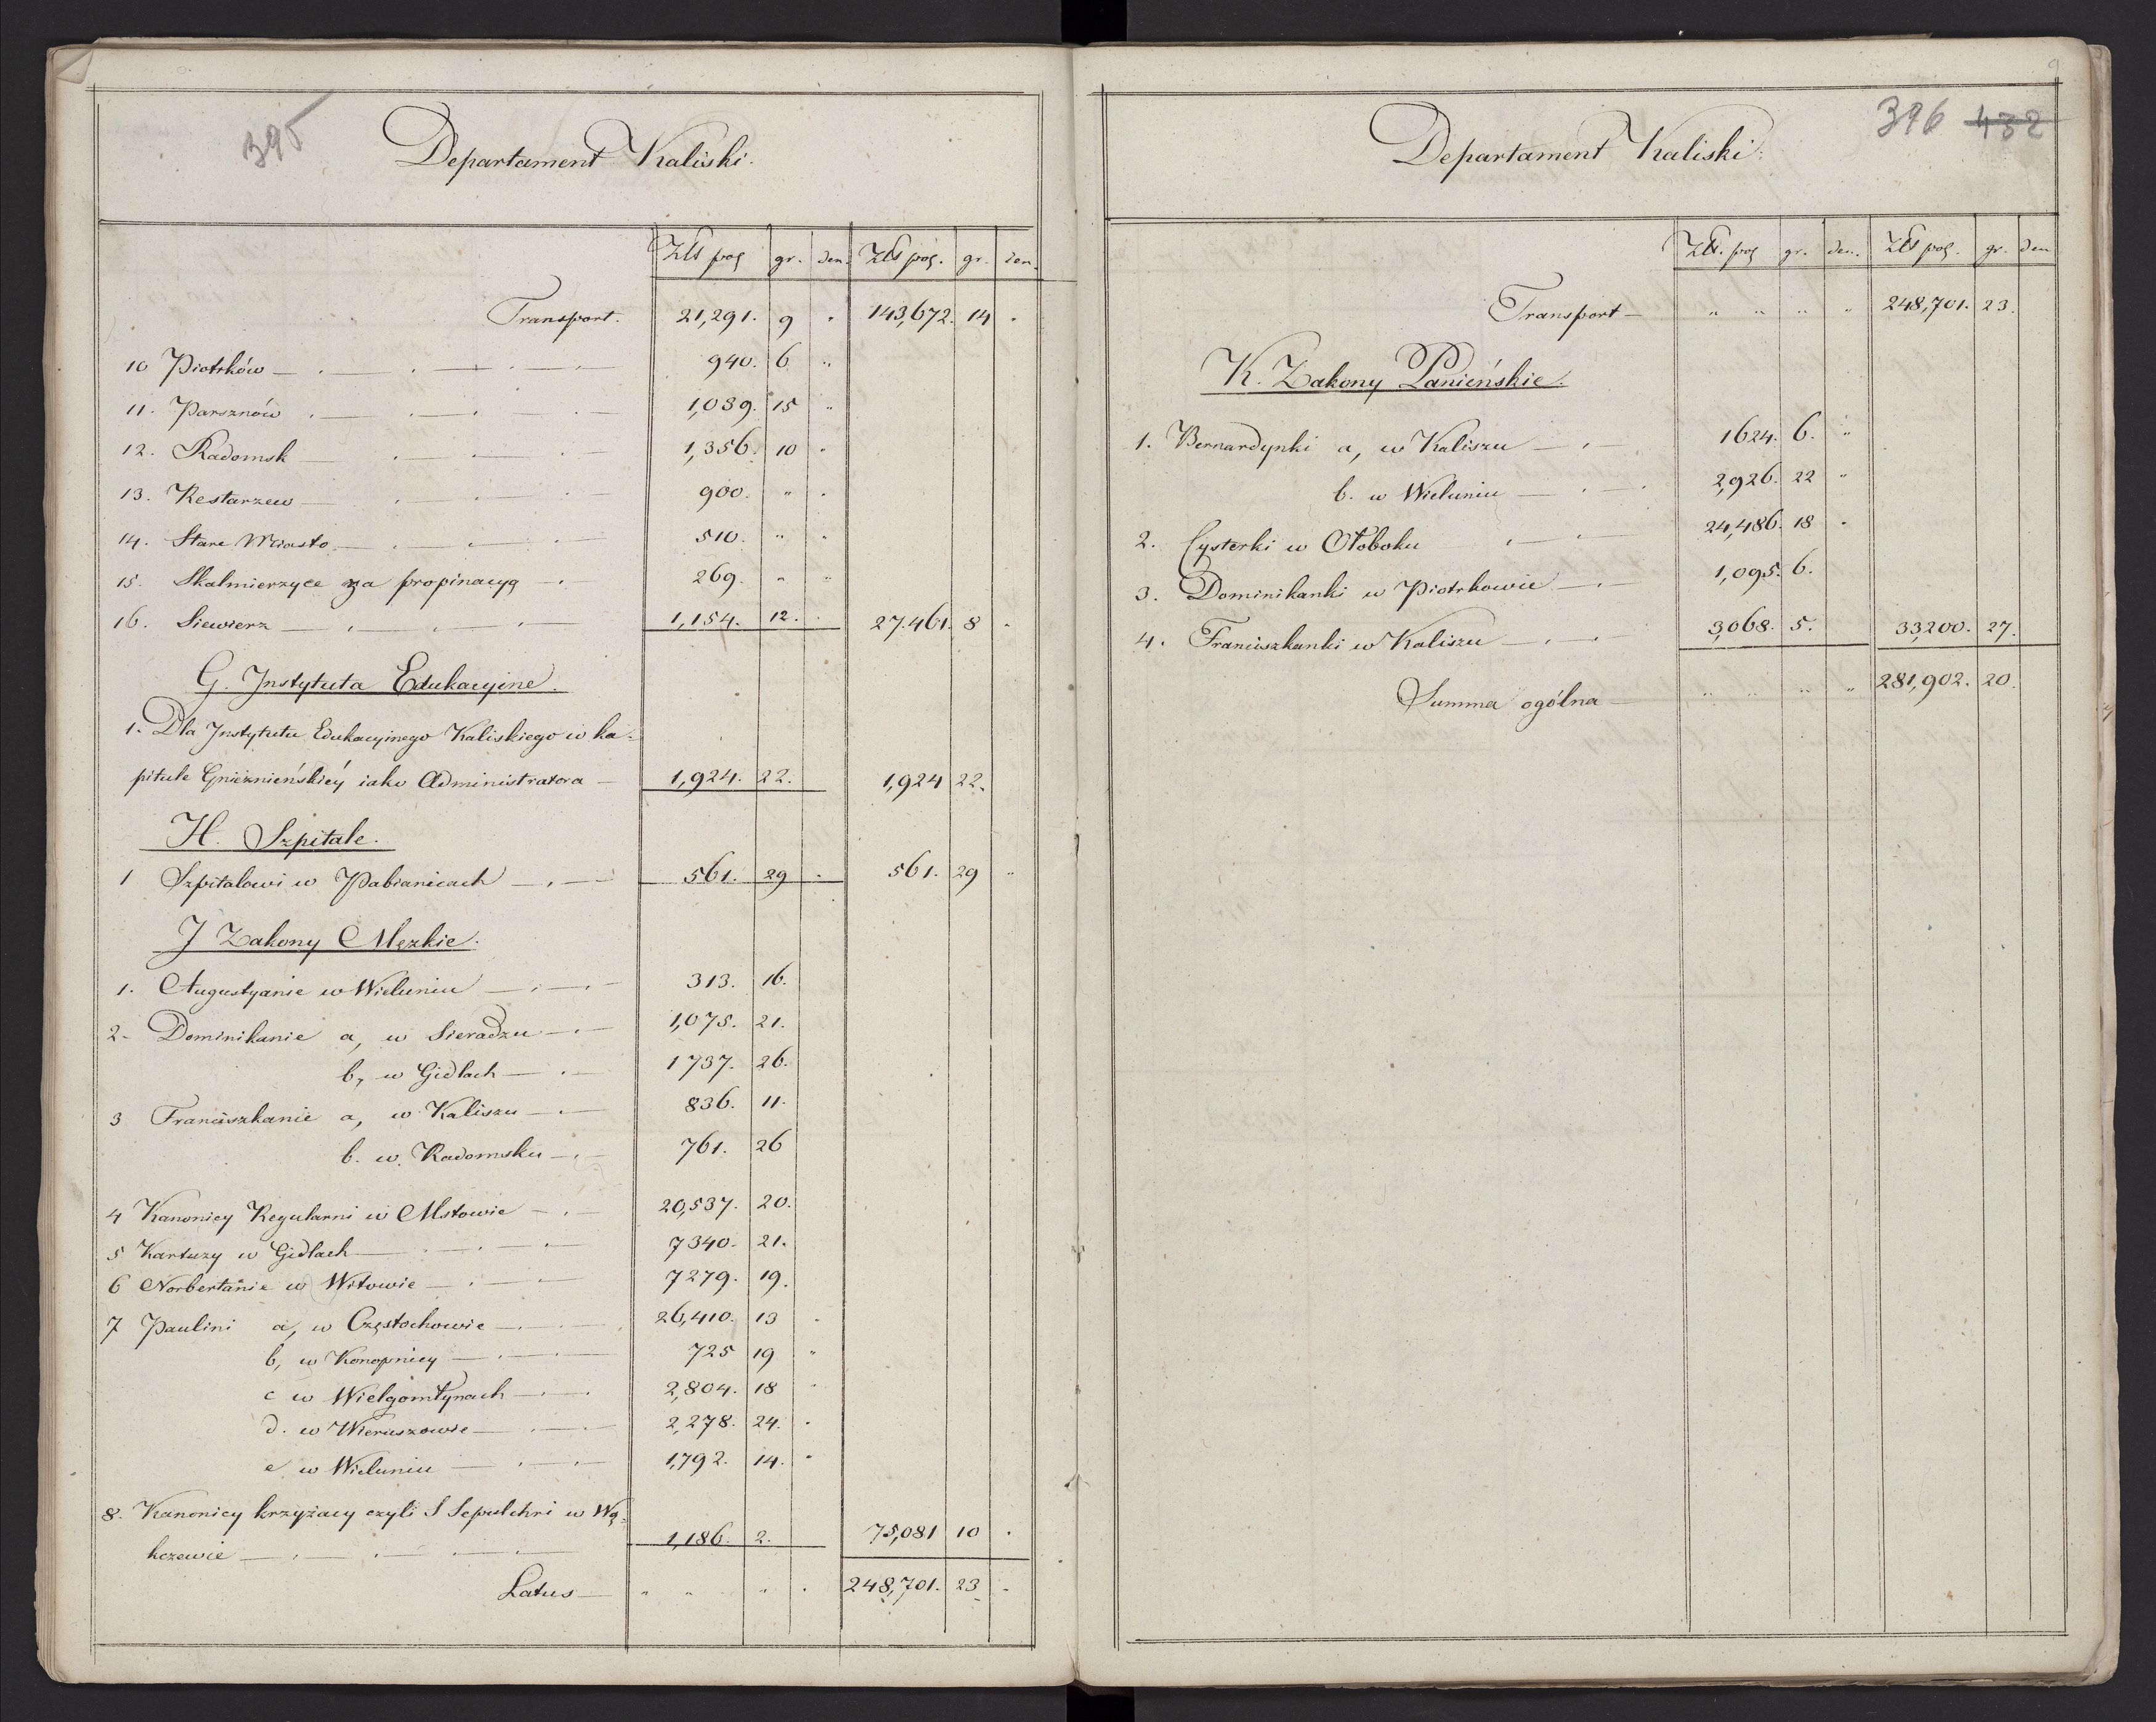 395
Departament Kaliski.
Złt pol gr. den. Złt pol. gr. den.
Transport. 21,291. 9 " 143,672. 14 "
10 Piotrków 940. 6 "
11. Parsznów 1,039. 15 "
12. Radomsk 1,356. 10 "
13. Restarzew 900. " "
14. Stare Miasto 510. " "
15. Skalmierzyce za propinacyą 269. " "
16. Siewierz 1,154. 12. " 27.461. 8 "
G. Instytuta Edukacyine.
1. Dla Instytutu Edukacyinego Kaliskiego w ka-
pitule Gnieznieńskiéy iako Administratora 1,924. 22. 1,924 22.
H. Szpitale.
1 Szpitalowi w Pabianicach 561. 29 " 561. 29 "
J Zakony Męzkie.
1. Augustyanie w Wieluniu 313. 16.
2. Dominikanie a, w Sieradzu 1,075. 21.
b, w Gidlach 1737. 26.
3 Franciszkanie a, w Kaliszu 836. 11.
b. w Radomsku 761. 26
4 Kanonicy Regularni w Mstowie 20,537. 20.
5 Kartuzy w Gidlach 7340. 21.
6 Norbertanie w Witowie 7279. 19.
7 Paulini a, w Częstochowie 26,410. 13 "
b, w Konopnicy 725 19 "
c w Wielgomłynach 2,804. 18 "
d. w Wieruszowie 2,278. 24. "
e w Wieluniu 1,792. 14. "
8. Kanonicy krzyżacy czyli S Sepulchri w Wę-
kczewie 1,186. 2. 75,081 10 "
Latus " " " " 248,701. 23 "
9
396 432
Departament Kaliski.
Złt. pol gr. den. Złt pol. gr. den
Transport " " " " 248,701. 23.
K. Zakony Panieńskie.
1. Bernardynki a, w Kaliszu 1624. 6. "
b. w Wieluniu 2,926. 22 "
2. Cysterki w Ołoboku 24,486. 18 "
3. Dominikanki w Piotrkowie 1,095. 6.
4. Franciszkanki w Kaliszu 3,068. 5. 33,200. 27.
Summa ogólna " " " " 281,902. 20.